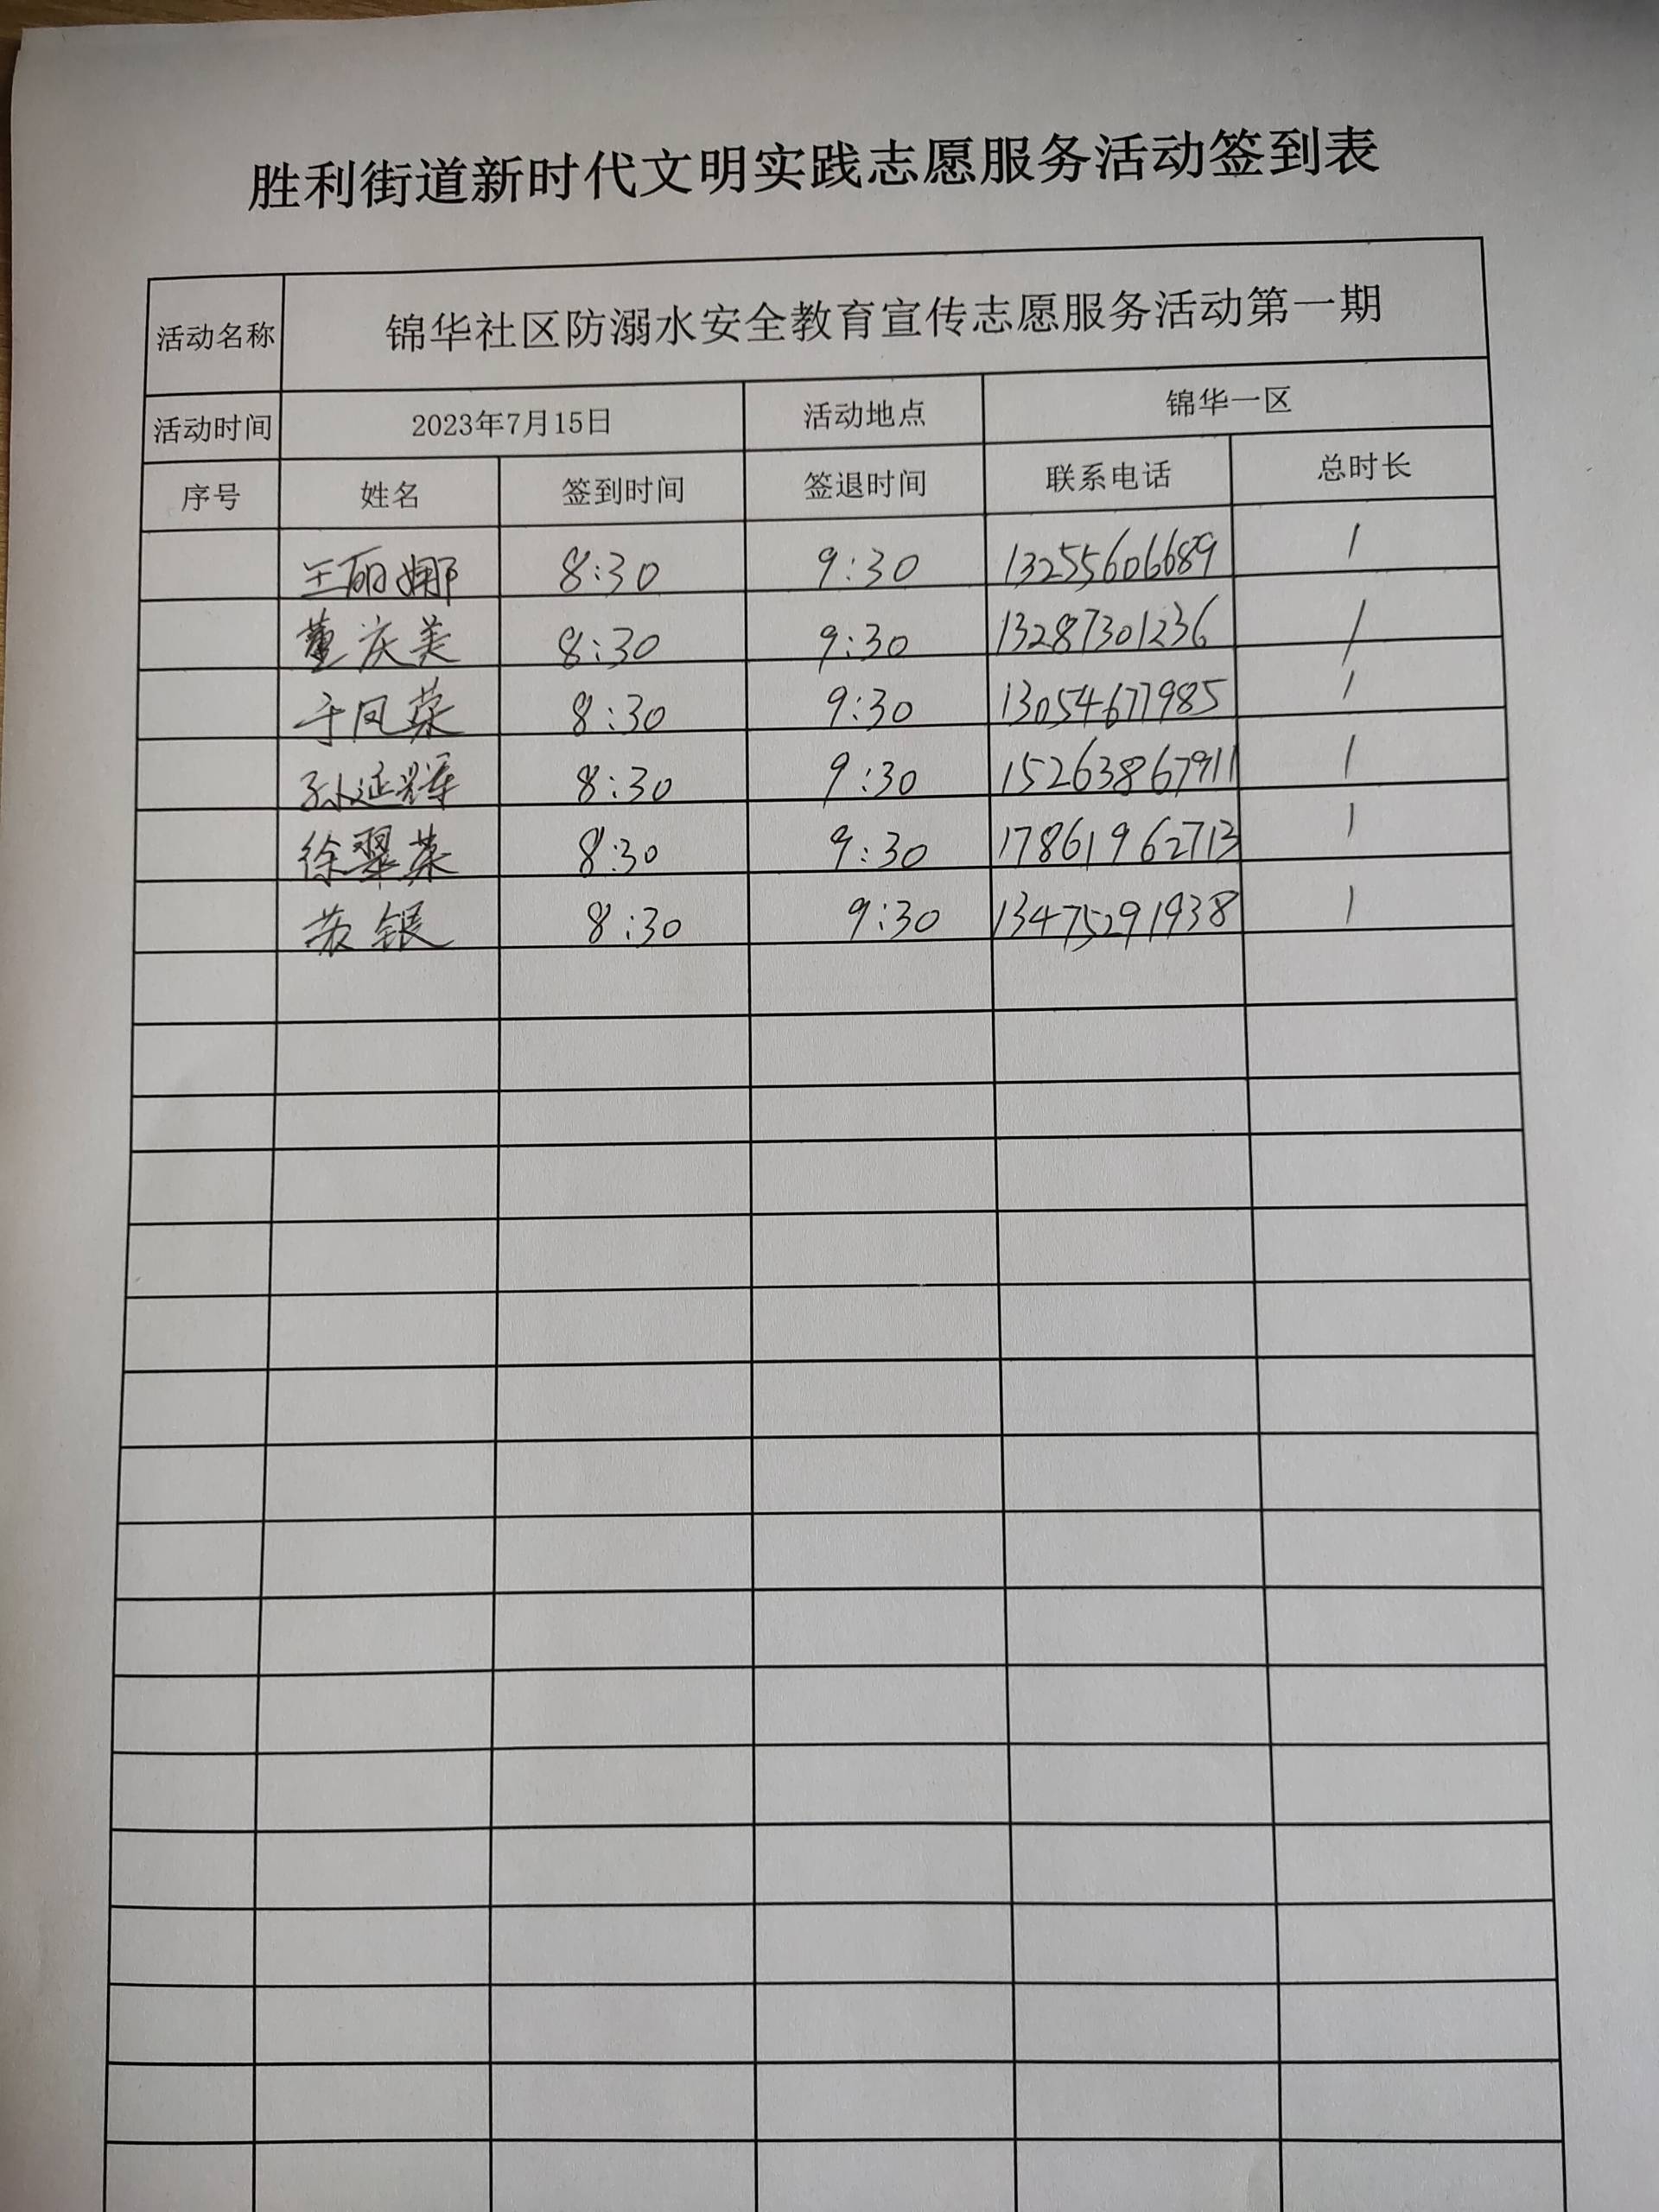 胜利街道新时代文明实践志愿服务活动签到表
活动名称 锦华社区防溺水安全教育宣传志愿服务活动第一期
活动时间 2023年7月15日 活动地点 锦华一区
序号 姓名 签到时间 签退时间 联系电话 总时长
王丽娜 8:30 9:30 13255606689 1
董庆美 8:30 9:30 13287301236 1
于凤荣 8:30 9:30 13054677985 1
孙延辉 8:30 9:30 15263867911 1
徐翠英 8:30 9:30 17861962713 1
苏银 8:30 9:30 13475291938 1